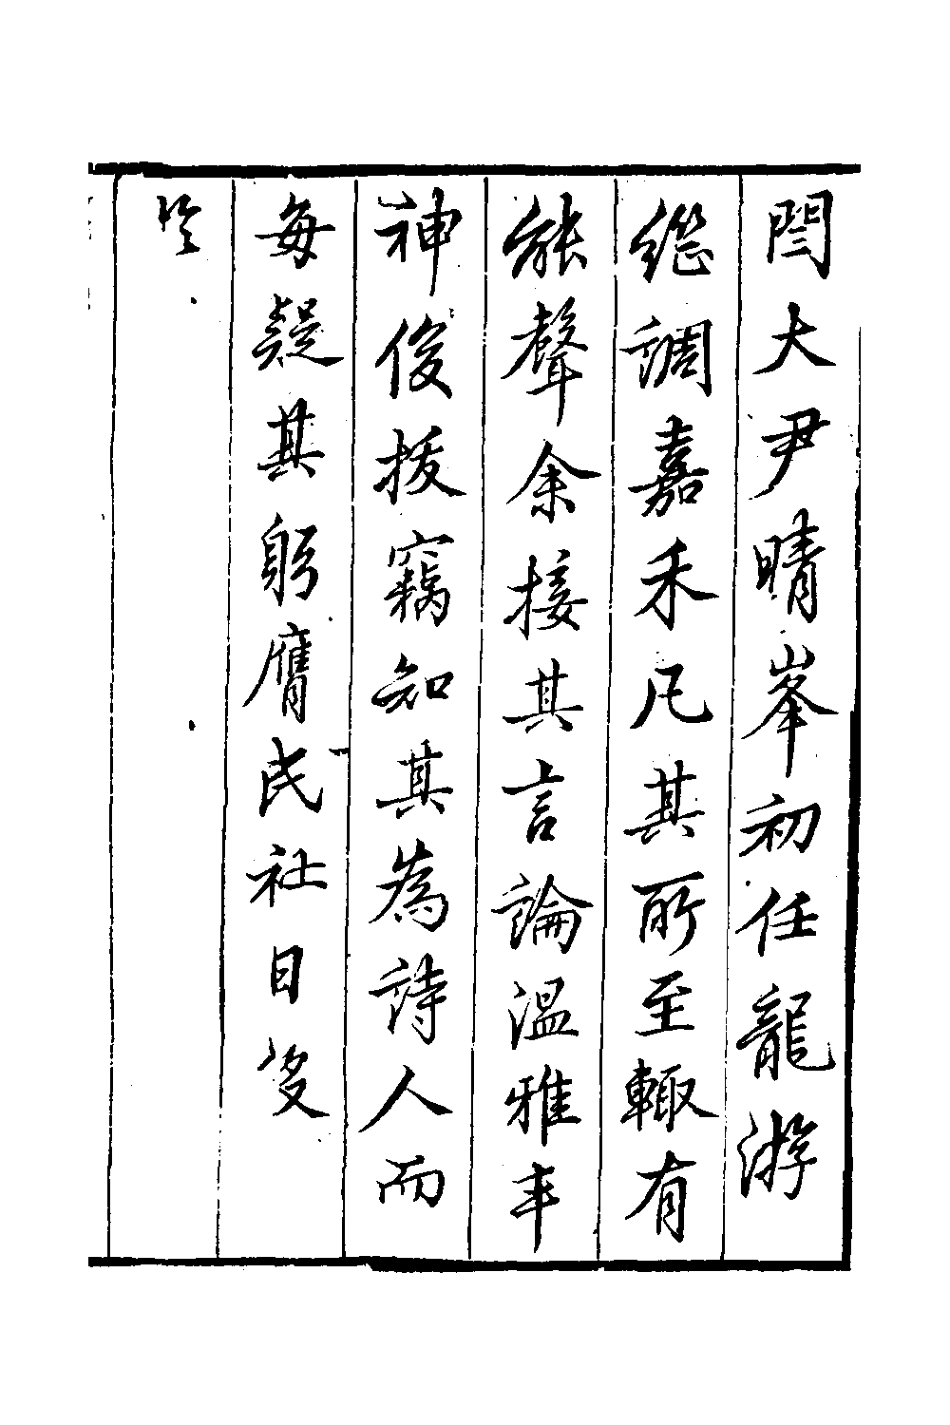 閆大尹晴峯初任龍游
繼調嘉禾凡其所至輒有
能聲余接其言論溫雅丰
神俊拔竊知其為詩人而
每疑其躬膺民社日